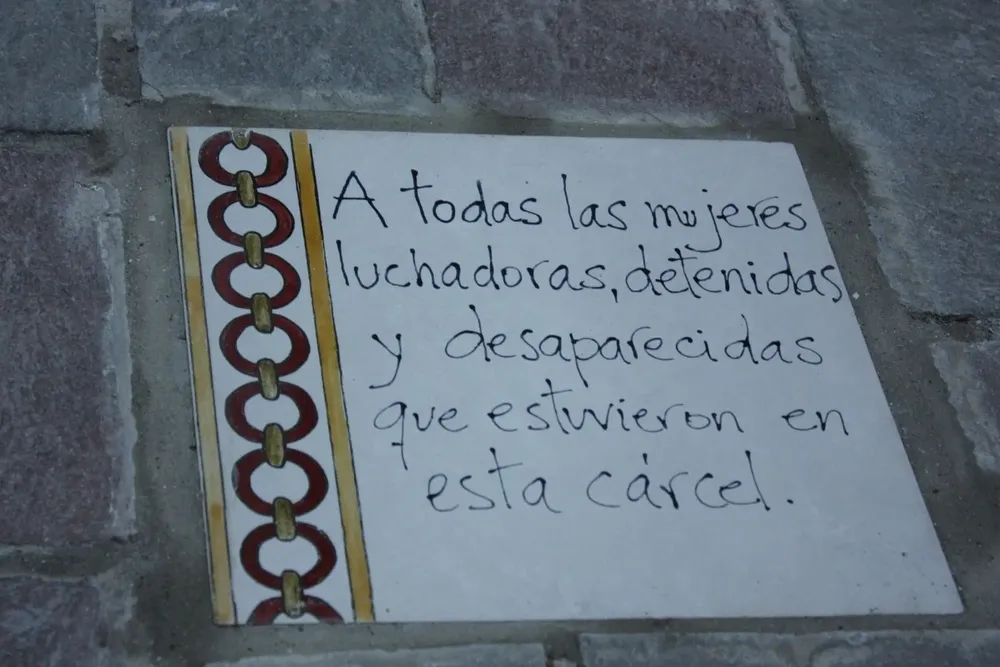 A todas las mujeres
luchadoras, detenidas
y desaparecidas
que estuvieron en
esta cárcel.